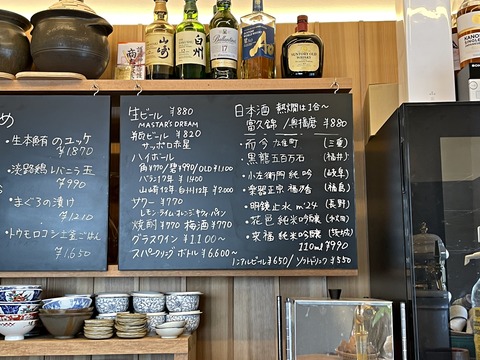 山崎
白州
Ballantine's
17
Ao
SUNTORY OLD
WHISKY
め
・生本鮪のユッケ
¥1.870
・淡路鶏レバニラ玉
¥990
・まぐろの漬け
¥1.210
・トウモロコシ土釜ごはん
¥1.650
生ビール ¥880
MASTAR'S DREAM
瓶ビール ¥820
サッポロ赤星
ハイボール
角¥770/碧¥990/OLD¥1.100
バラン17年 ¥1.400
山崎12年 白州12年 ¥2.000
サワー ¥770
レモン・ライム・オレンジ・キウイ・パイン
焼酎 ¥770 梅酒 ¥770
グラスワイン ¥1100〜
スパークリングボトル ¥6.600〜
日本酒 熱燗は1合〜
富久錦/奥播磨 ¥880
・而今 (三重)
・黒龍 五百万石 (福井)
・小左衛門 純吟 (岐阜)
・楽器正宗 (福島)
・明鏡止水 m'24 (長野)
・花邑 純米吟醸 (秋田)
・来福 純米吟醸 (茨城)
110ml ¥990
ノンアルビール ¥650/ソフトドリンク ¥550